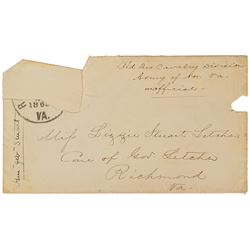 Hd Qrs Cavalry Division
Army of No. Va.
unofficial
R
186
VA.
Gen "Jeb" Stuart
Miss Lizzie Stuart Letcher
Care of Gov Letcher
Richmond
Va.